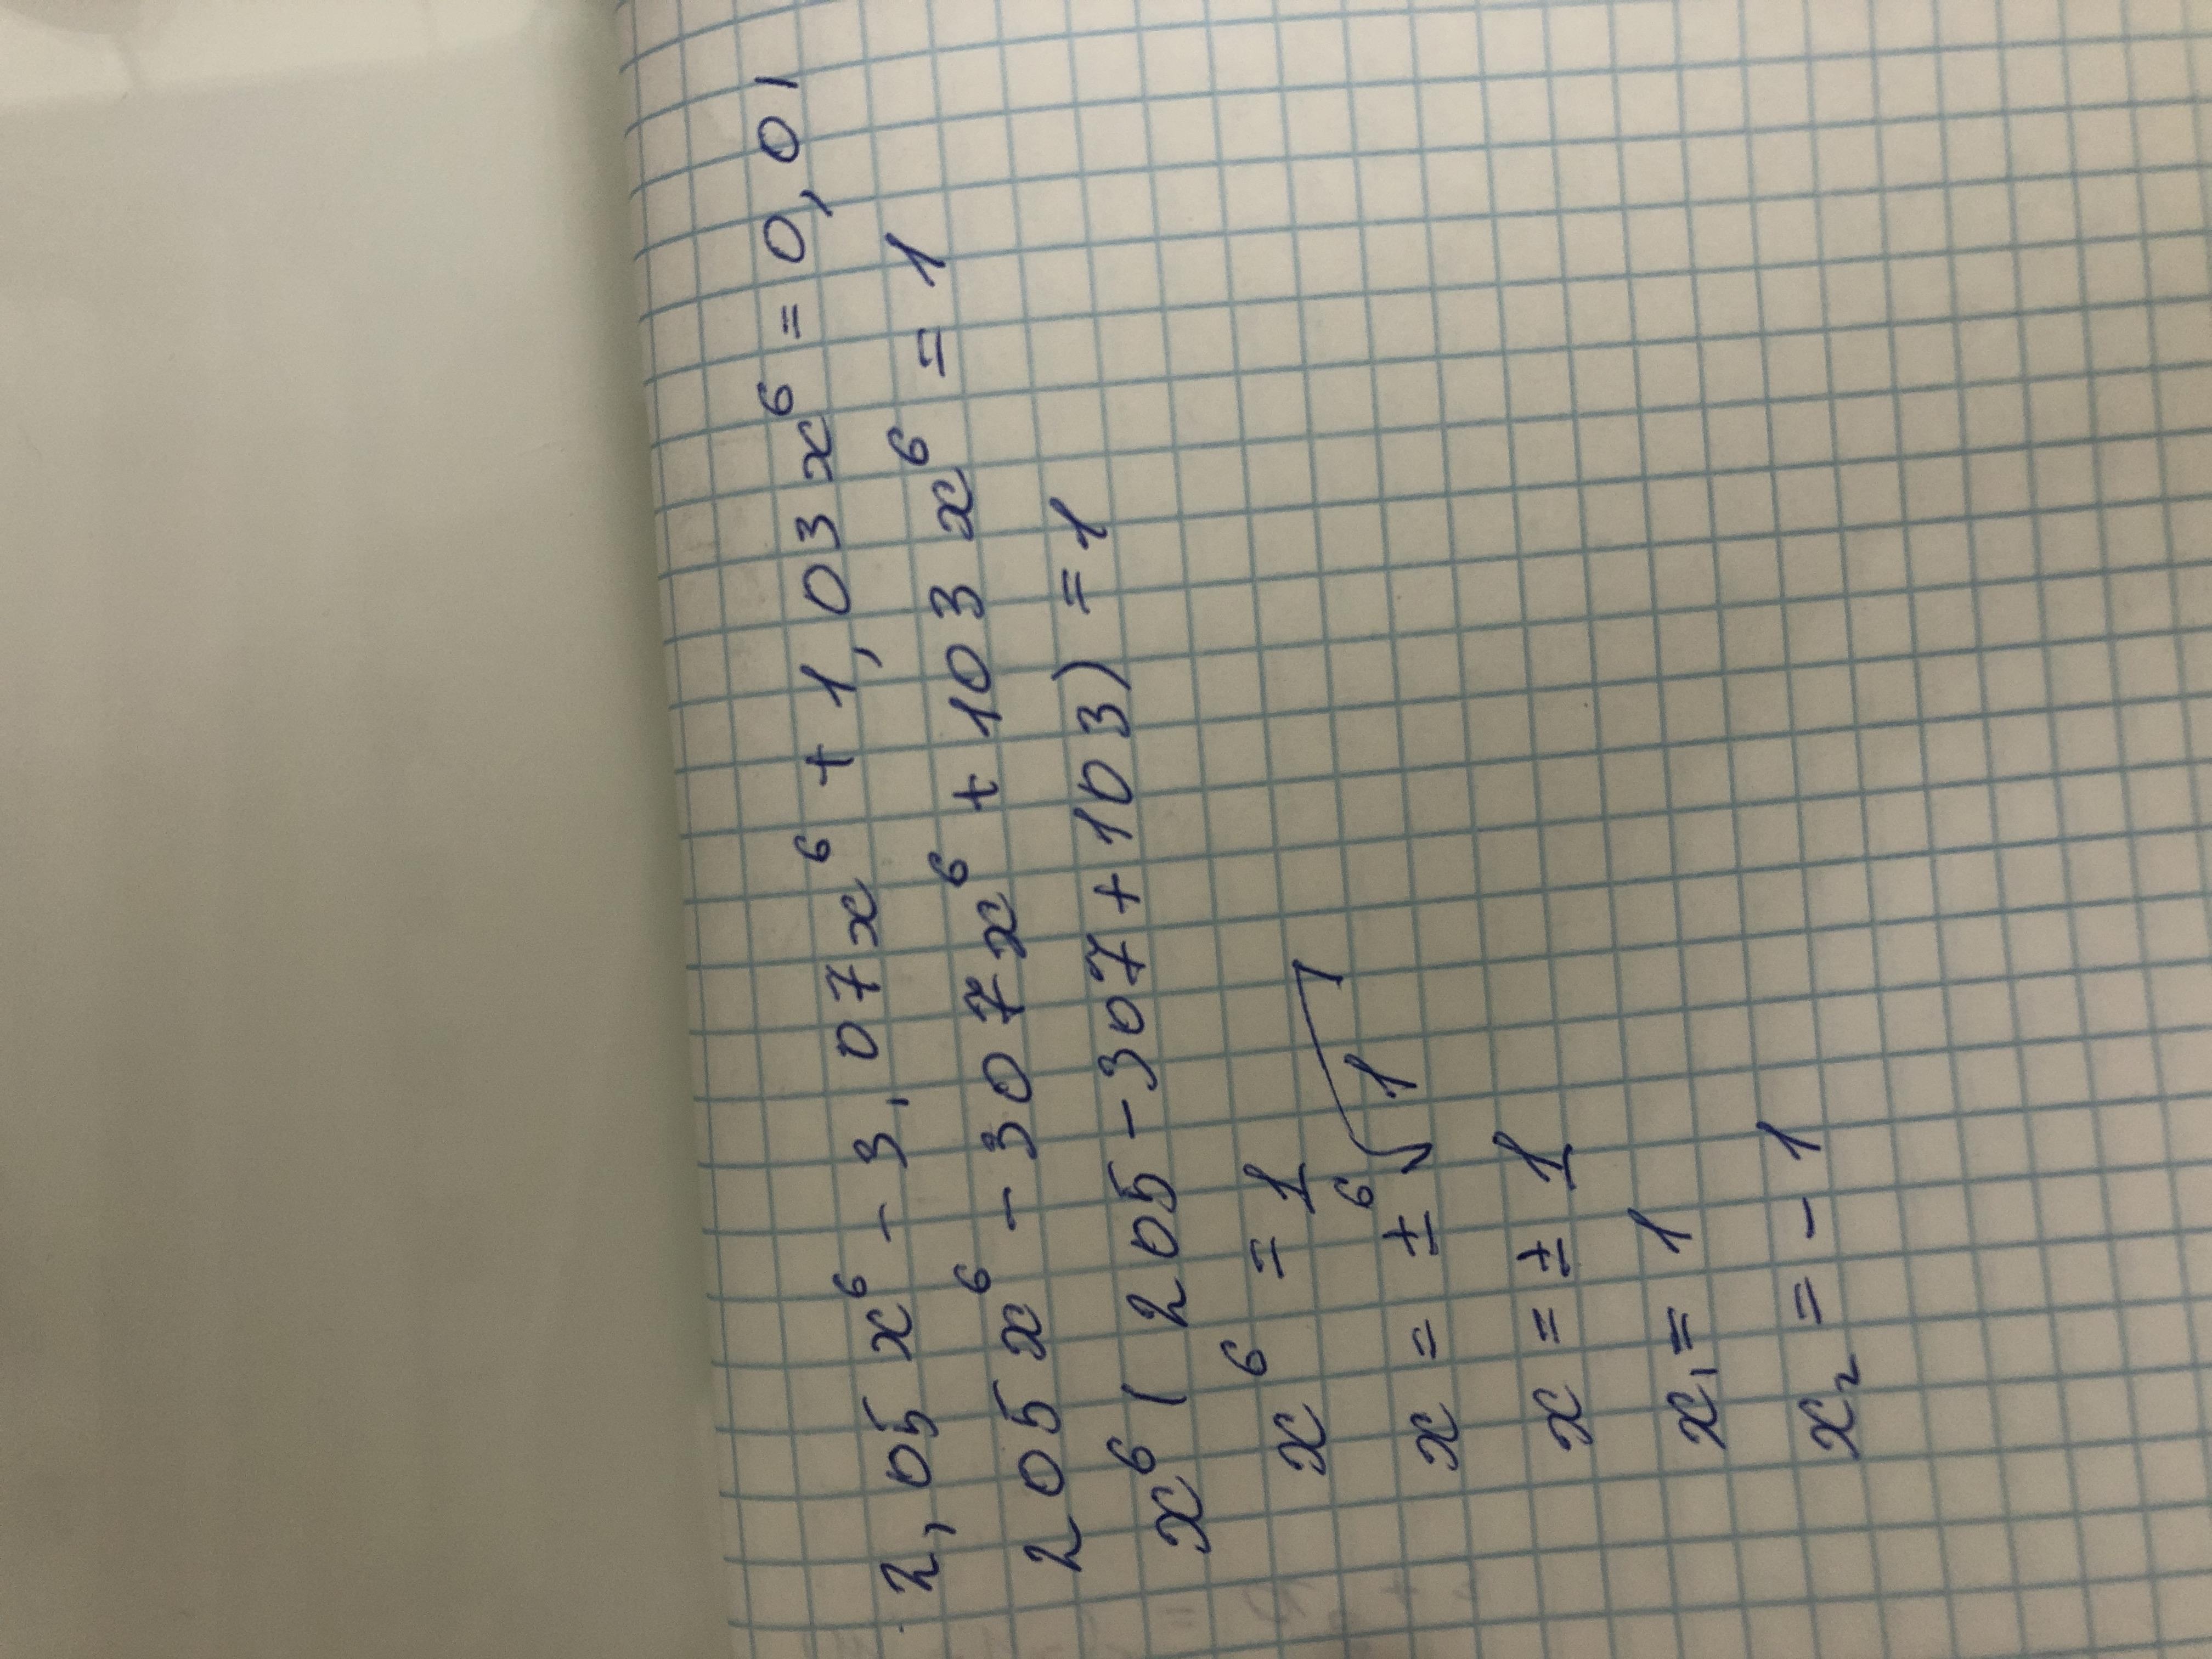 2,05x⁶ - 3,07x⁶ + 1,03x⁶ = 0,01
205x⁶ - 307x⁶ + 103x⁶ = 1
x⁶(205 - 307 + 103) = 1
x⁶ = 1
x = ± ⁶√1
x = ± 1
x₁ = 1
x₂ = - 1